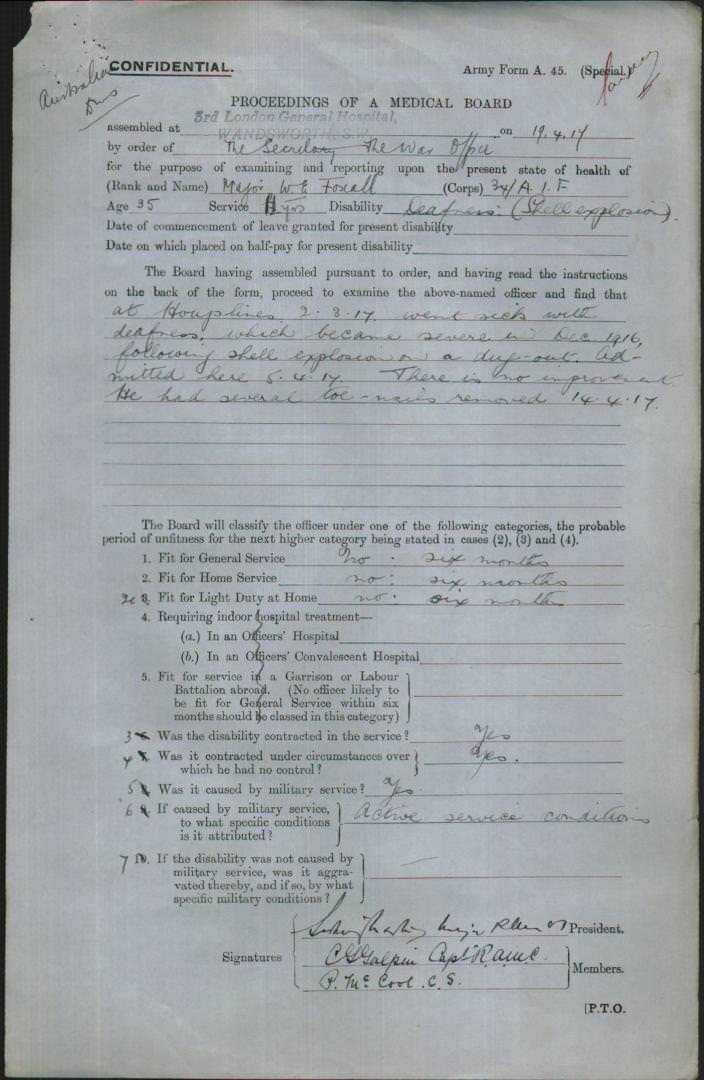 Australia
CONFIDENTIAL.
Army Form A. 45. (Special.)
PROCEEDINGS OF A MEDICAL BOARD
3rd London General Hospital,
WANDSWORTH, S.W.
assembled at on 19.4.17
by order of The Secretary The War Office
for the purpose of examining and reporting upon the present state of health of
(Rank and Name) Major W E Foxall (Corps) 34/A.I.F
Age 35 Service yrs Disability Deafness. (Shell explosion).
Date of commencement of leave granted for present disability
Date on which placed on half-pay for present disability
The Board having assembled pursuant to order, and having read the instructions
on the back of the form, proceed to examine the above-named officer and find that
at Houplines 2.3.17. went sick with
deafness, which became severe in Dec 1916,
following shell explosion on a dug-out. Ad-
mitted here 5.4.17. There is no improvement
He had several toe-nails removed 14.4.17.
The Board will classify the officer under one of the following categories, the probable
period of unfitness for the next higher category being stated in cases (2), (3) and (4).
1. Fit for General Service no. six months
2. Fit for Home Service no: six months
3. Fit for Light Duty at Home no: six months
4. Requiring indoor hospital treatment—
(a.) In an Officers' Hospital
(b.) In an Officers' Convalescent Hospital
5. Fit for service in a Garrison or Labour
Battalion abroad. (No officer likely to
be fit for General Service within six
months should be classed in this category)
3 Was the disability contracted in the service? Yes
4 Was it contracted under circumstances over
which he had no control? Yes.
5 Was it caused by military service? Yes.
6 If caused by military service,
to what specific conditions
is it attributed? Active service conditions
7 10. If the disability was not caused by
military service, was it aggra-
vated thereby, and if so, by what
specific military conditions? —
President.
Signatures C G Galpin Capt R.A.M.C.
Members.
P. McCool. C.S.
[P.T.O.